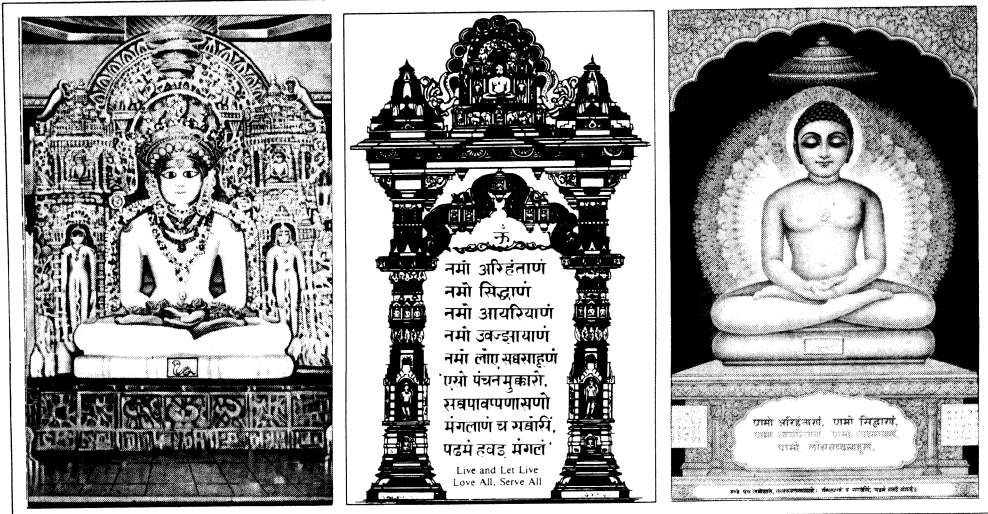 ॐ
नमो अरिहंताणं
नमो सिद्धाणं
नमो आयरियाणं
नमो उवज्झायाणं
नमो लोए सव्वसाहूणं
एसो पंचनमुक्कारो,
सव्वपावप्पणासणो
मंगलाणं च सव्वेसिं,
पढमं हवइ मंगलं
Live and Let Live
Love All, Serve All
णमो अरिहंताणं, णमो सिद्धाणं,
णमो आयरियाणं णमो उवज्झायाणं
णमो लोए सव्वसाहूणं.